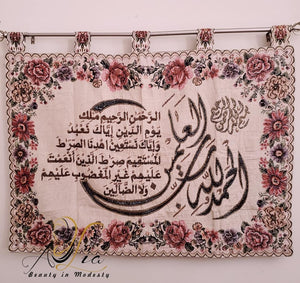 بسم الله الرحمن الرحيم
الحمد لله رب العلمين
الرحمن الرحيم ملك
يوم الدين إياك نعبد
وإياك نستعين اهدنا الصرط
المستقيم صرط الذين أنعمت
عليهم غير المغضوب عليهم
ولا الضالين
Beauty in Modesty